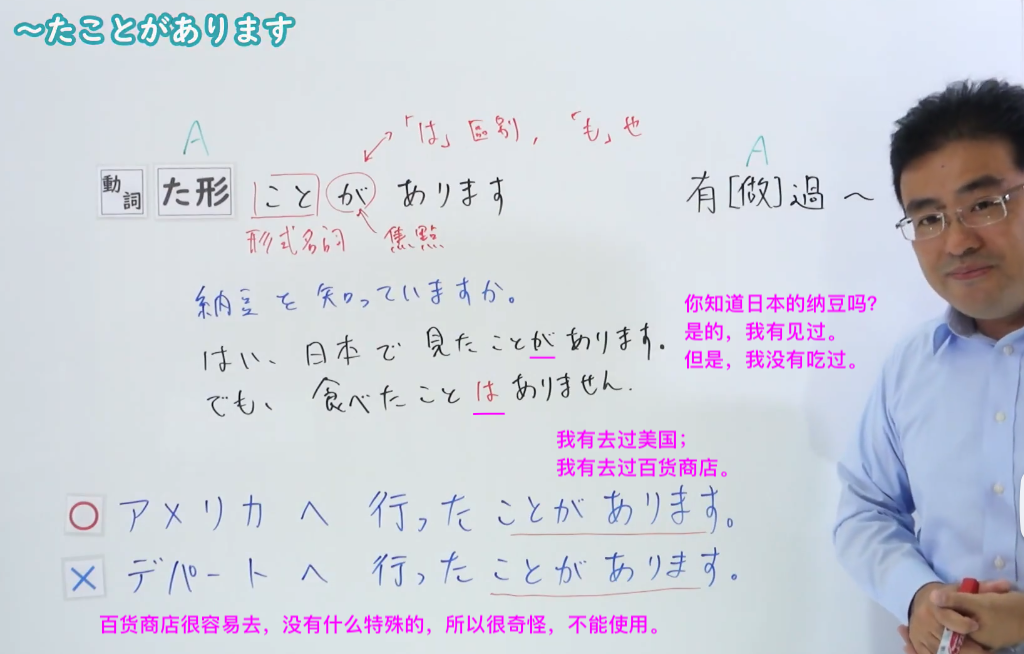 ～たことがあります
「は」區别，「も」也
A
A
動詞 た形 ことが あります
有[做]過～
形式名詞 焦點
納豆を知っていますか。
はい、日本で見たことがあります。
でも、食べたことはありません.
你知道日本的纳豆吗?
是的，我有见过。
但是，我没有吃过。
我有去过美国；
我有去过百货商店。
○ アメリカへ行ったことがあります。
× デパートへ行ったことがあります。
百货商店很容易去，没有什么特殊的，所以很奇怪，不能使用。